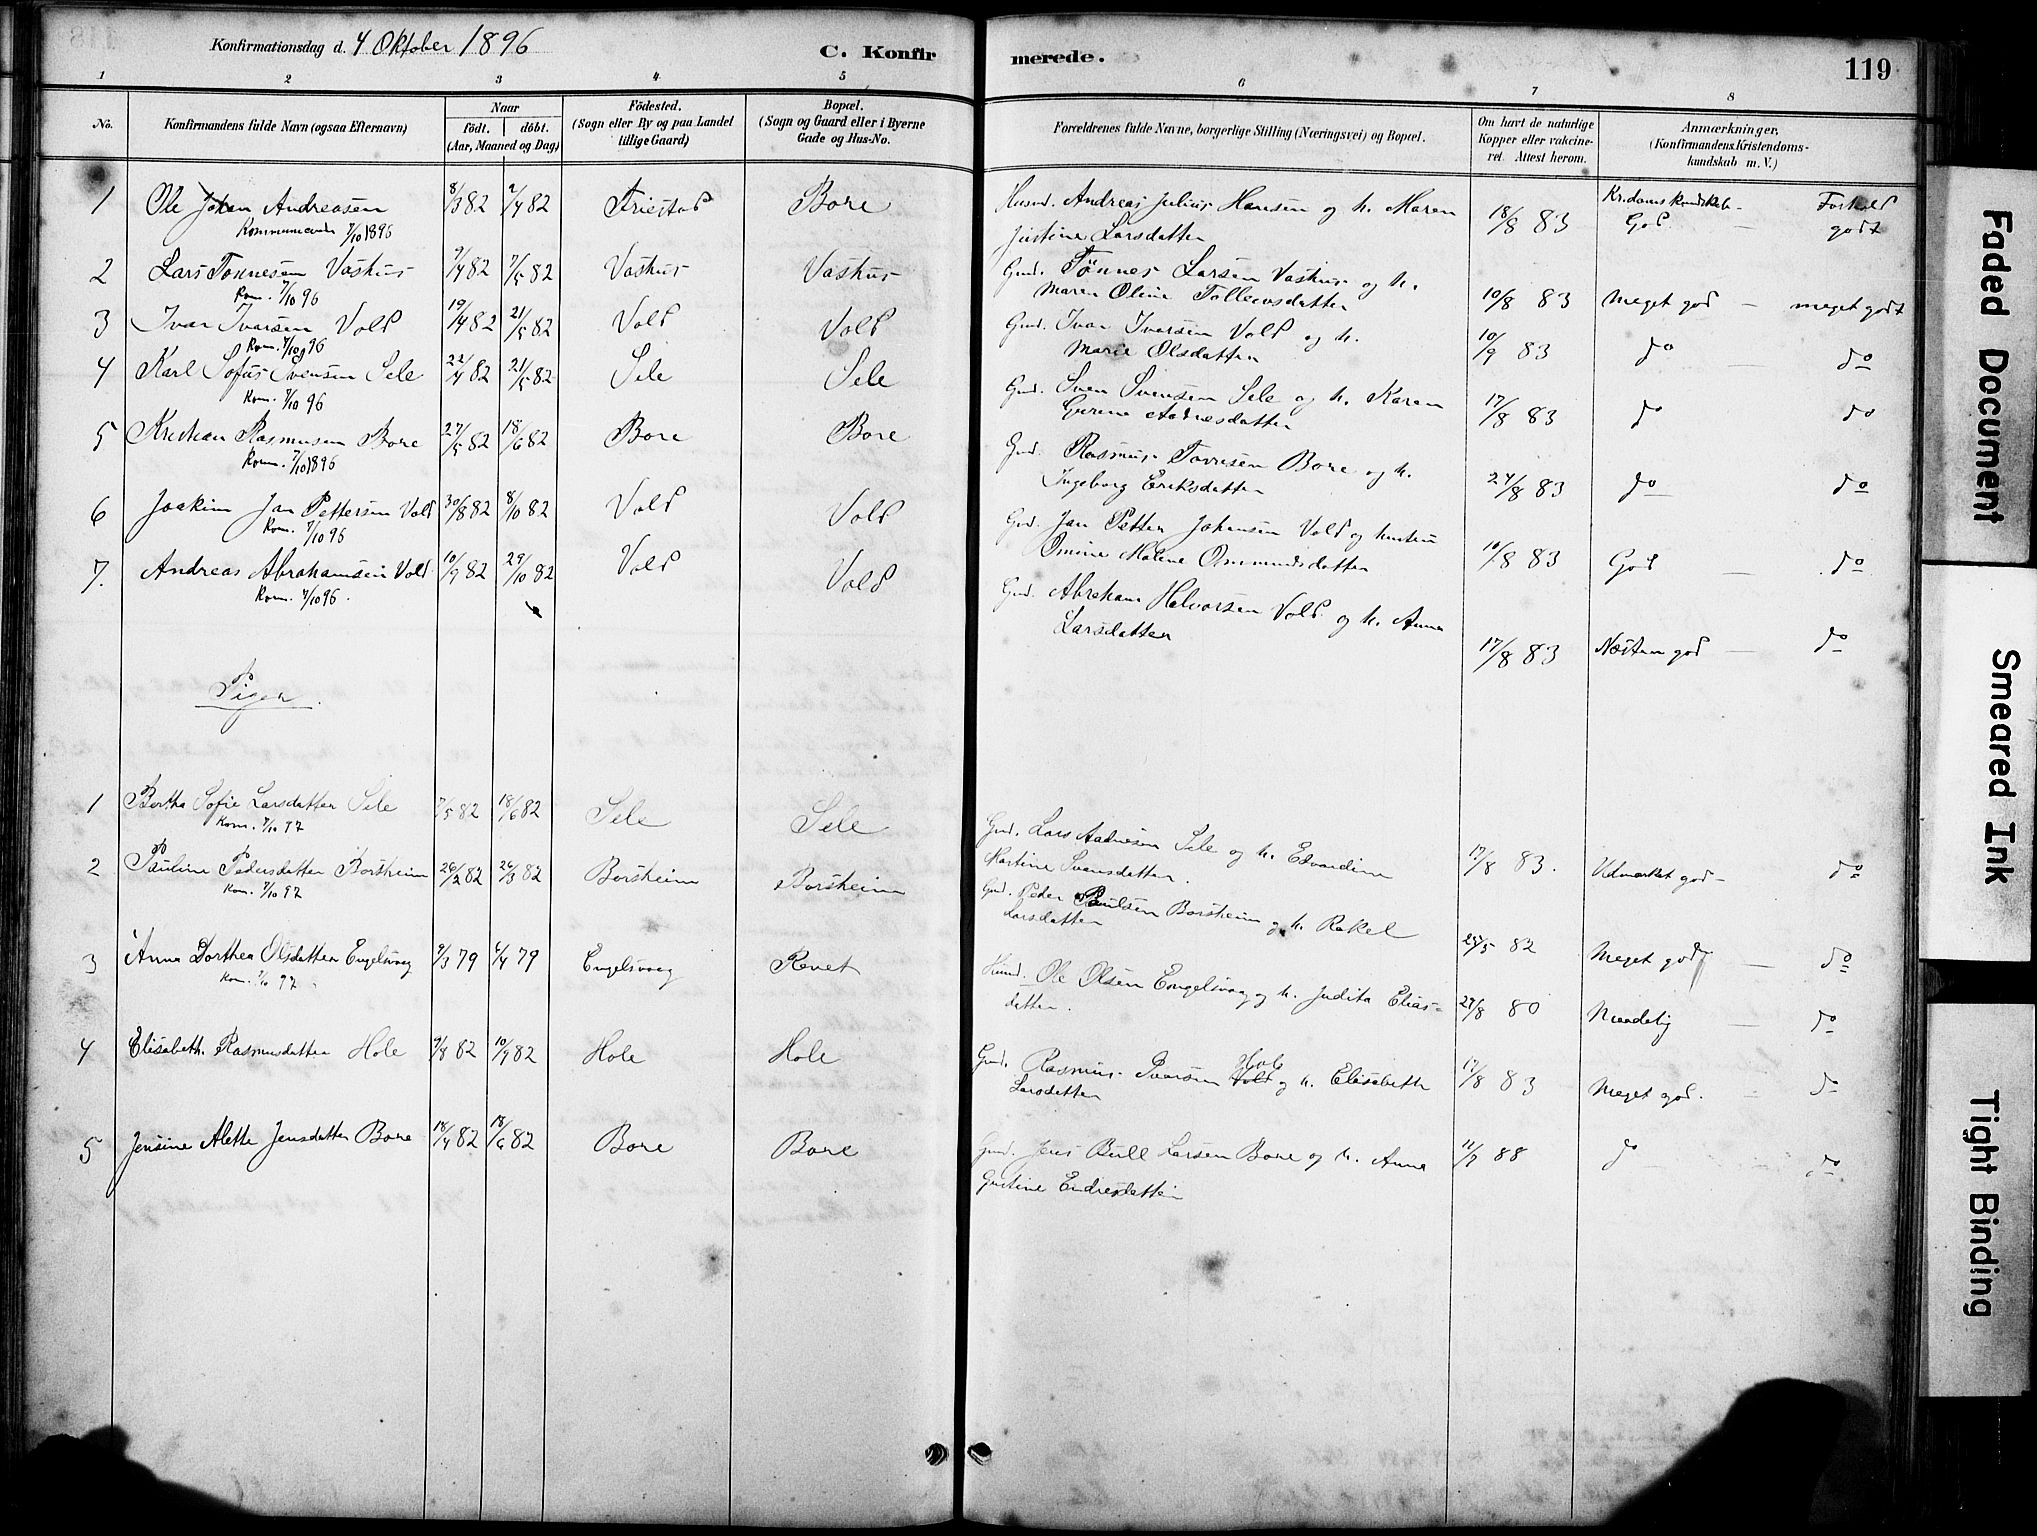 Konfirmationsdag d. 4 Oktober 1896
C. Konfirmerede.
119
1 2 3 4 5 6 7 8
No.
Konfirmandens fulde Navn (ogsaa Efternavn)
Naar
födt. döbt.
(Aar, Maaned og Dag)
Födested.
(Sogn eller By og paa Landet
tillige Gaard)
Bopæl.
(Sogn og Gaard eller i Byerne
Gade og Hus-No.
Forældrenes fulde Navne, borgerlige Stilling (Næringsvei) og Bopæl.
Om havt de naturlige
Kopper eller vakcine-
ret. Attest herom.
Anmærkninger.
(Konfirmandens Kristendoms-
kundskab m. V.)
1 Ole Johan Andreasen 8/3 82 9/4 82 Friestad Bore Husmd. Andreas Julius Hansen og h. Maren 18/8 83 Kr.domskundskab Forhold
Kommunicerede 7/10 1896 Justine Larsdatter God — godt
2 Lars Tønnesen Vashus 9/4 82 7/5 82 Vashus Vashus Gmd. Tønnes Larsen Vashus og h. 10/8 83 Meget god — meget godt
Kom. 7/10 96 Maren Oline Tollevsdatter
3 Ivar Ivarsen Vold 19/4 82 21/5 82 Vold Vold Gmd. Ivar Ivarsen Vold og h. 10/9 83 do do
Kom. 7/10 96 Marie Olsdatter
4 Karl Sofus Svensen Sele 22/4 82 21/5 82 Sele Sele Gmd. Sven Svensen Sele og h. Karen 17/8 83 do do
Kom. 7/10 96 Gurine Aadnesdatter
5 Kristian Rasmusen Bore 27/5 82 18/6 82 Bore Bore Gmd. Rasmus Torresen Bore og h. 24/8 83 do do
Kom. 7/10 1896 Ingeborg Eriksdatter
6 Joakim Jan Pettersen Vold 30/8 82 8/10 82 Vold Vold Gmd. Jan Petter Johansen Vold og hustru 10/8 83 God — do
Kom. 7/10 96 Omine Malene Osmundsdatter
7. Andreas Abrahamsen Vold 10/9 82 29/10 82 Vold Vold Gmd. Abraham Halvorsen Vold og h. Anna 17/8 83 Næsten god — do
Kom. 7/10 96. Larsdatter
Piger.
1 Bertha Sofie Larsdatter Sele 7/5 82 18/6 82 Sele Sele Gmd. Lars Aadnesen Sele og h. Edvardine 17/8 83. Udmærket god — do
Kom. 7/10 97 Martine Svensdatter.
2 Pauline Pedersdatter Borsheim 26/2 82 26/3 82 Borsheim Borsheim Gmd. Peder Paulsen Borsheim og h. Rakel 25/5 82 Meget god — do
Kom. 7/10 97 Larsdatter
3 Anna Dorthea Olsdatter Engelsvaag 9/3 79 6/4 79 Engelsvaag Revet Husmd. Ole Olsen Engelsvaag og h. Judita Elias- 27/8 80 Maadelig — do
Kom. 7/10 97 datter.
4 Elisabeth Rasmusdatter Hole 9/8 82 10/9 82 Hole Hole Gmd. Rasmus Ivarsen Vold Hole og h. Elisabeth 17/8 83 Meget god. — do
Larsdatter
5 Jensine Alette Jensdatter Bore 18/4 82 18/6 82 Bore Bore Gmd. Jens Bull Larsen Bore og h. Anna 11/7 88 do do
Gustine Endresdatter
Faded Document
Smeared Ink
Tight Binding